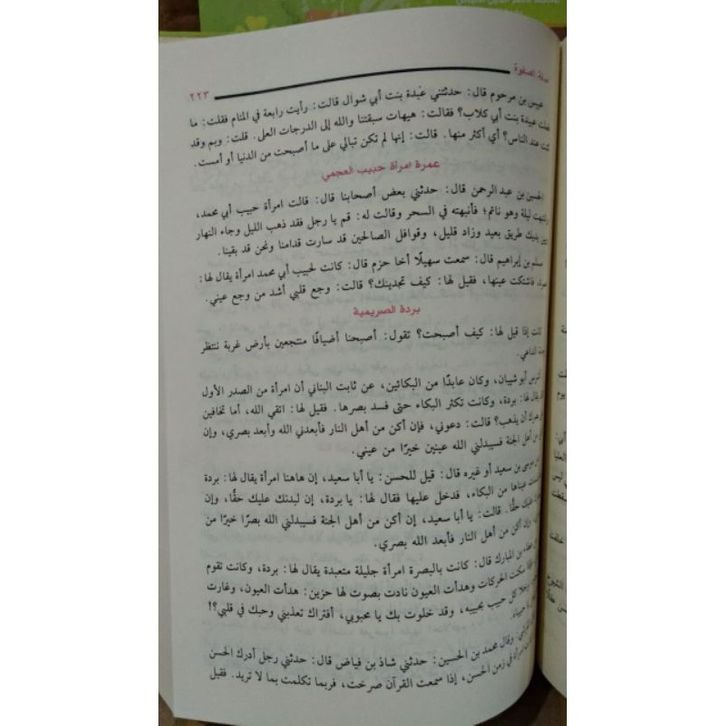 صفة الصفوة
٢٢٣
عبيس بن مرحوم قال: حدثتني عبدة بنت أبي شوال قالت: رأيت رابعة في المنام فقلت: ما
فعلت عبيدة بنت أبي كلاب؟ فقالت: هيهات سبقتنا والله إلى الدرجات العلى. قلت: وبم وقد
كنت عند الناس؟ أي أكثر منها. قالت: إنها لم تكن تبالي على ما أصبحت من الدنيا أو أمست.
عمرة امرأة حبيب العجمي
الحسين بن عبد الرحمن قال: حدثني بعض أصحابنا قال: قالت امرأة حبيب أبي محمد،
وانتبهت ليلة وهو نائم؛ فأنبهته في السحر وقالت له: قم يا رجل فقد ذهب الليل وجاء النهار
وبين يديك طريق بعيد وزاد قليل، وقوافل الصالحين قد سارت قدامنا ونحن قد بقينا.
مسلم بن إبراهيم قال: سمعت سهيلًا أخا حزم قال: كانت لحبيب أبي محمد امرأة يقال لها:
عمرة، فاشتكت عينها، فقيل لها: كيف تجدينك؟ قالت: وجع قلبي أشد من وجع عيني.
بردة الصريمية
كانت إذا قيل لها: كيف أصبحت؟ تقول: أصبحنا أضيافًا منتجعين بأرض غربة ننتظر
الداعي.
أبو شيبان، وكان عابدًا من البكائين، عن ثابت البناني أن امرأة من الصدر الأول
يقال لها: بردة، وكانت تكثر البكاء حتى فسد بصرها. فقيل لها: اتقي الله، أما تخافين
بصرك أن يذهب؟ قالت: دعوني، فإن أكن من أهل النار فأبعدني الله وأبعد بصري، وإن
أكن من أهل الجنة فسيبدلني الله عينين خيرًا من عيني.
بن سعيد أو غيره قال: قيل للحسن: يا أبا سعيد، إن هاهنا امرأة يقال لها: بردة
عيناها من البكاء، فدخل عليها فقال لها: يا بردة، إن لبدنك عليك حقًّا، وإن
عليك حقًّا. قالت: يا أبا سعيد، إن أكن من أهل الجنة فسيبدلني الله بصرًا خيرًا من
وإن أكن من أهل النار فأبعد الله بصري.
عطاء بن المبارك قال: كانت بالبصرة امرأة جليلة متعبدة يقال لها: بردة، وكانت تقوم
سكنت الحركات وهدأت العيون نادت بصوت لها حزين: هدأت العيون، وغارت
وخلا كل حبيب بحبيبه، وقد خلوت بك يا محبوبي، أفتراك تعذبني وحبك في قلبي؟!
وقال محمد بن الحسين: حدثني شاذ بن فياض قال: حدثني رجل أدرك الحسن
في زمن الحسن، إذا سمعت القرآن صرخت، فربما تكلمت بما لا تريد. فقيل